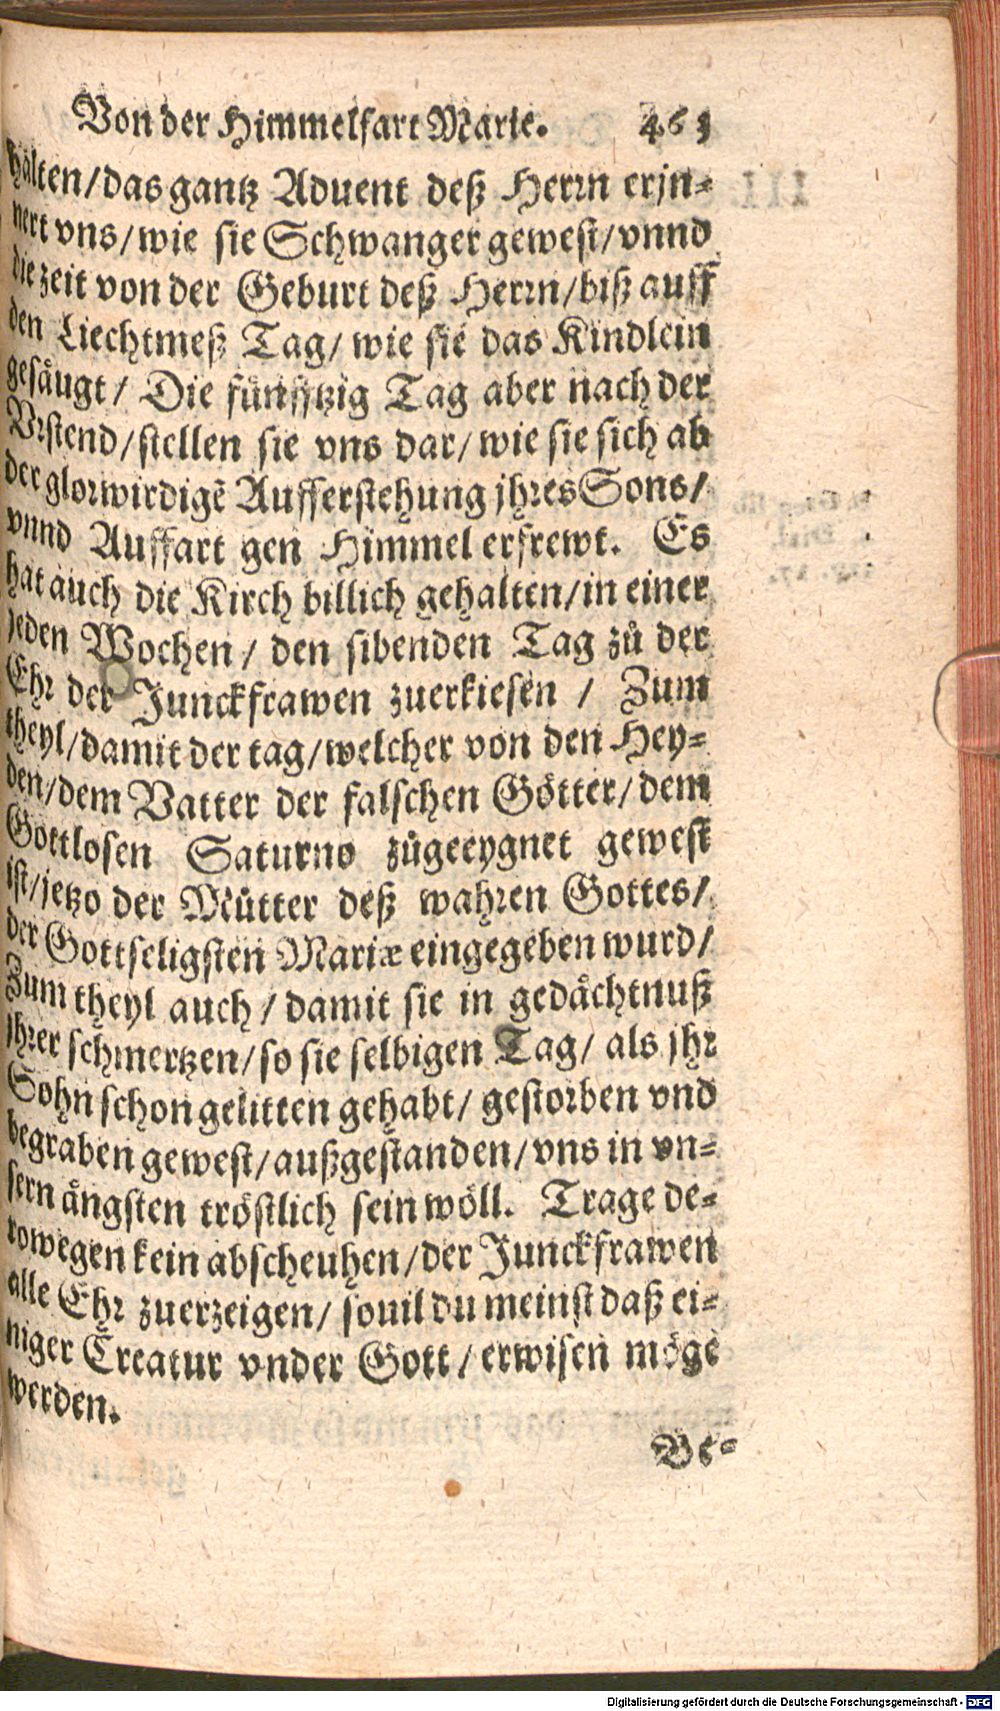 Von der Himmelfart Marie. 463
hälten/das gantz Aduent deß Herrn erjn⸗
nert vns/wie sie Schwanger gewest/vnnd
die zeit von der Geburt deß Herrn/biß auff
den Liechtmeß Tag/ wie sie das Kindlein
gesäugt/ Die fünfftzig Tag aber nach der
Vrstend/stellen sie vns dar/ wie sie sich ab
der glorwirdigẽ Aufferstehung jhres Sons/
vnnd Auffart gen Himmel erfrewt. Es
hat auch die Kirch billich gehalten/in einer
jeden Wochen/ den sibenden Tag zů der
Ehr der Junckfrawen zuerkiesen / Zum
theyl/damit der tag/welcher von den Hey⸗
den/dem Vatter der falschen Götter/dem
Gottlosen Saturno zůgeeygnet gewest
ist/jetzo der Můtter deß wahren Gottes/
der Gottseligsten Mariæ eingegeben wurd/
Zum theyl auch/ damit sie in gedächtnuß
jhrer schmertzen/so sie selbigen Tag/ als jhr
Sohn schon gelitten gehabt/ gestorben vnd
begraben gewest/außgestanden/vns in vn⸗
sern ängsten tröstlich sein wöll. Trage de⸗
rowegen kein abscheuhen/der Junckfrawen
alle Ehr zuerzeigen/ souil du meinst daß ei⸗
niger Creatur vnder Gott/erwisen möge
werden.
Be⸗
Digitalisierung gefördert durch die Deutsche Forschungsgemeinschaft - DFG